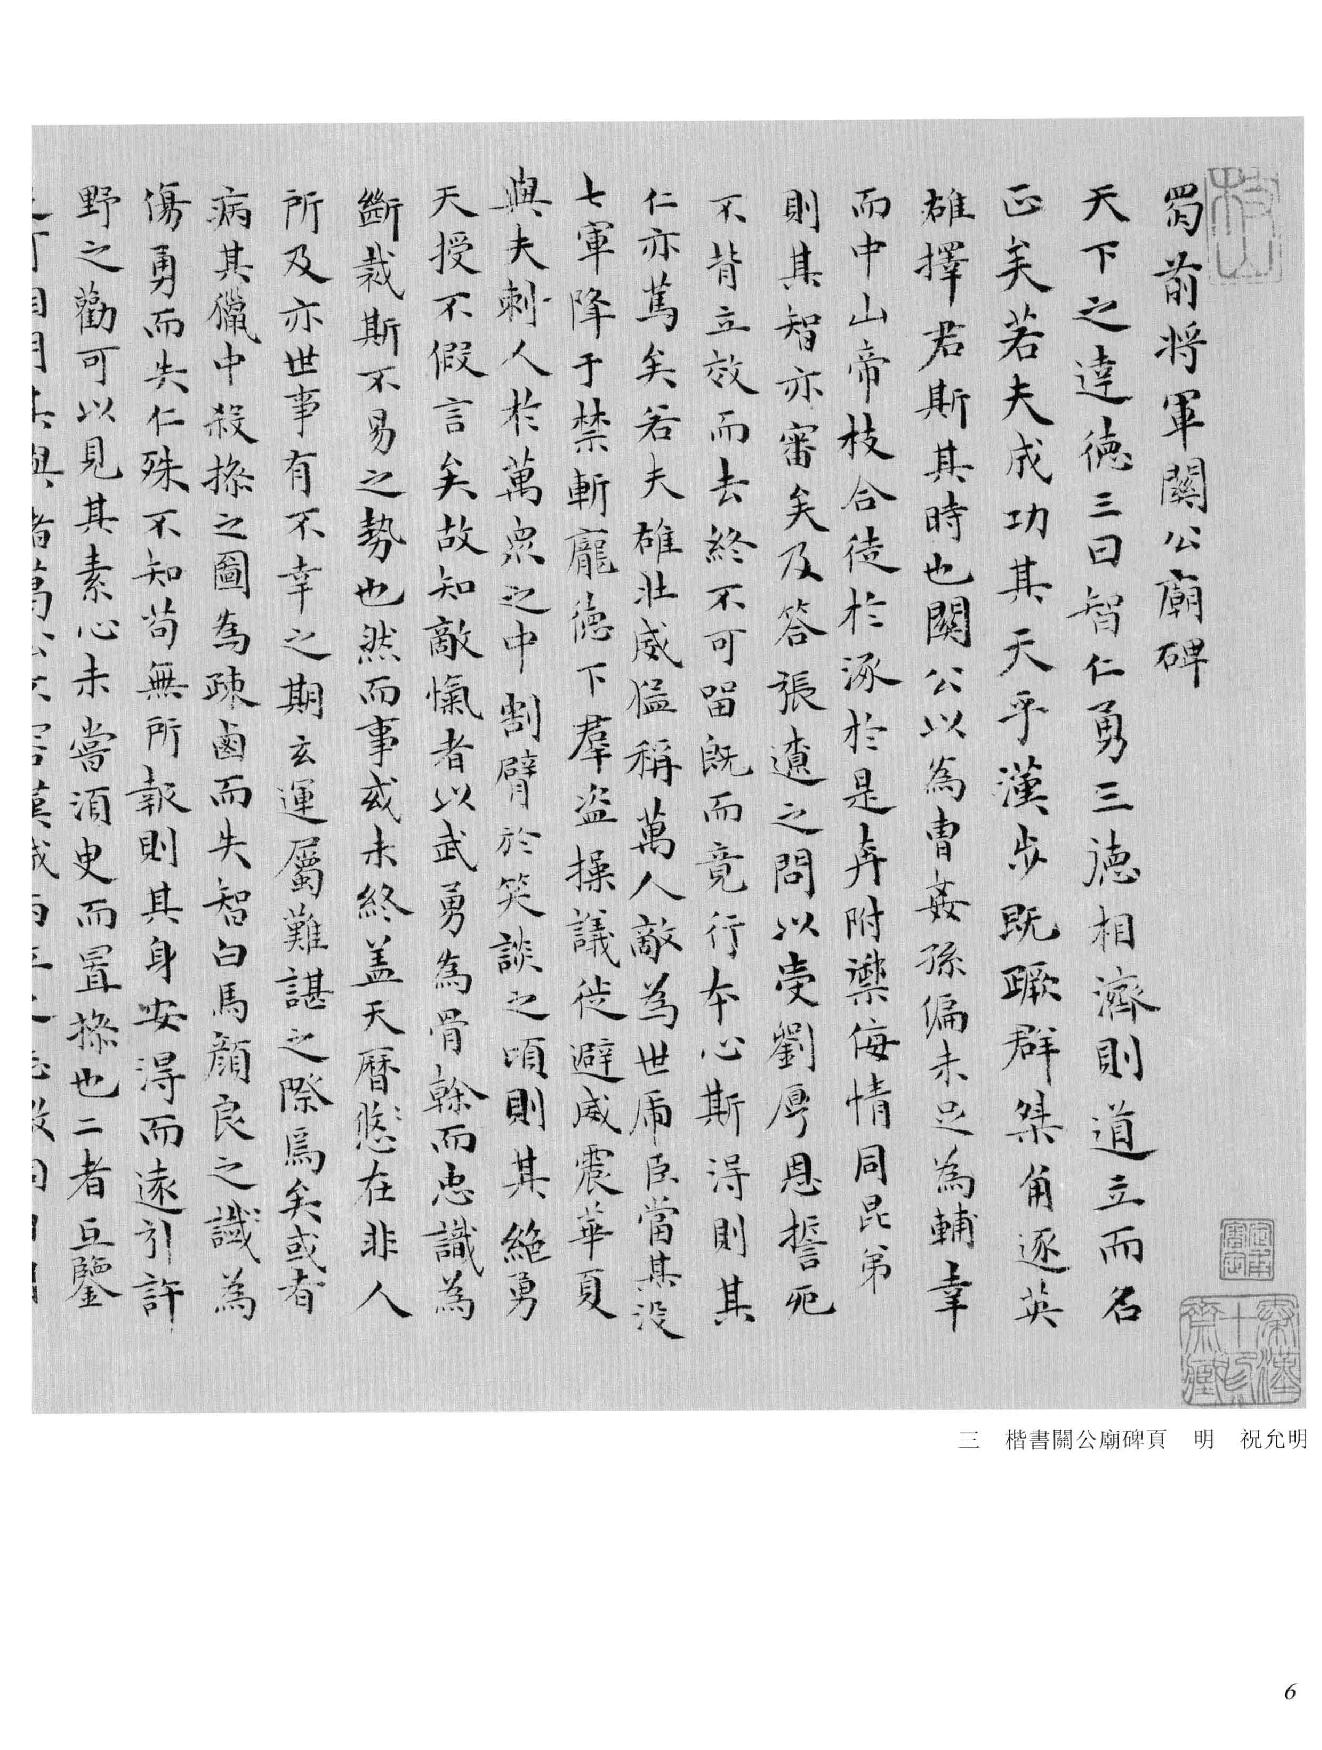 蜀前将軍關公廟碑
天下之達德三曰智仁勇三德相濟則道立而名
正矣若夫成功其天乎漢步既蹶群桀角逐英
雄擇君斯其時也關公以為曹姦孫偏未足為輔幸
而中山帝枝合徒於涿於是奔附禦侮情同昆弟
則其智亦審矣及答張遼之問以受劉厚恩誓死
不背立效而去終不可留既而竟行本心斯得則其
仁亦篤矣若夫雄壯威猛稱萬人敵為世虎臣當其没
七軍降于禁斬龐德下羣盗操議徙避威震華夏
與夫刺人於萬衆之中割臂於笑談之頃則其絶勇
天授不假言矣故知敵愾者以武勇為骨榦而忠識為
斷裁斯不易之勢也然而事或未終盖天曆攸在非人
所及亦世事有不幸之期玄運屬難諶之際焉矣或者
病其獵中殺操之圖為疎鹵而失智白馬顔良之 為
傷勇而失仁殊不知苟無所報則其身安得而遠引許
野之勸可以見其素心未嘗須臾而置操也二者互鑒
三　楷書關公廟碑頁　明　祝允明
枝山
6